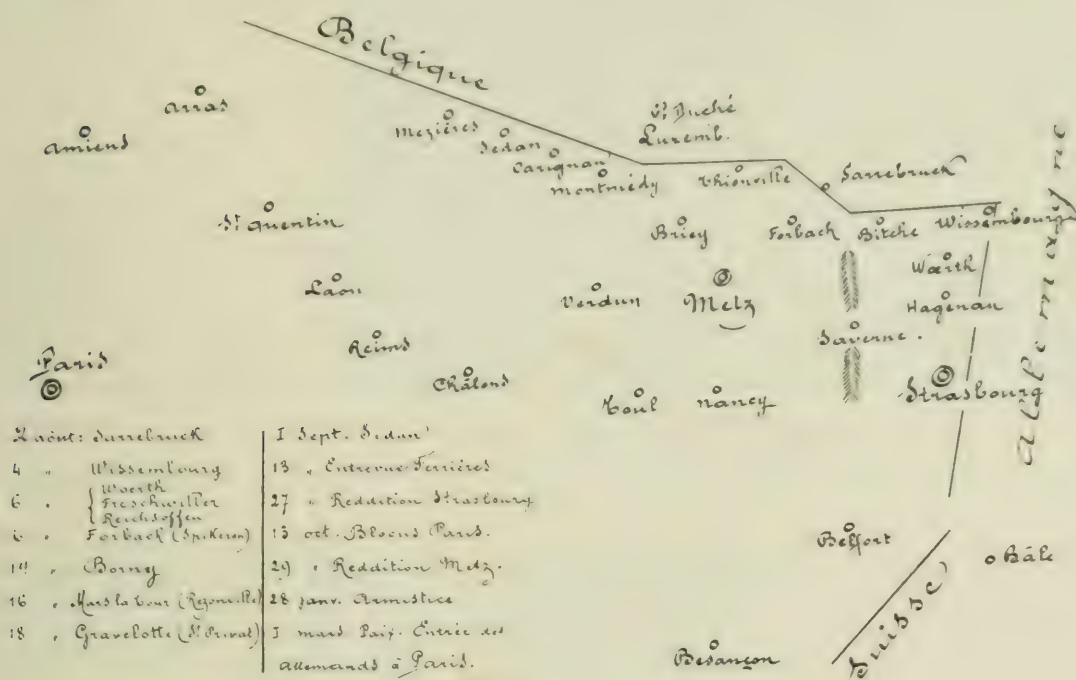 Belgique
Arras
Amiens
Mezières
Sedan
Carignan
Montmédy
Gd Duché
Luxemb.
Thionville
Sarrebruck
Allemagne
St Quentin
Briey
Forbach
Bitche
Wissembourg
Laon
Verdun
Metz
Wœrth
Hagenau
Saverne.
Paris
Reims
Châlons
Toul
Nancy
Strasbourg
Belfort
Bâle
Besançon
Suisse
2 août: Sarrebruck
4 " Wissembourg
6 " Woerth
Freschwiller
Reichsoffen
6 " Forbach (Spikeren)
14 " Borny
16 " Mars la Tour (Rezonville)
18 " Gravelotte (St Privat)
I Sept. Sedan
13 " Entrevue Ferrières
27 " Reddition Strasbourg
13 oct. Blocus Paris.
29 " Reddition Metz.
28 janv. Armistice
I mars Paix. Entrée des
allemands à Paris.